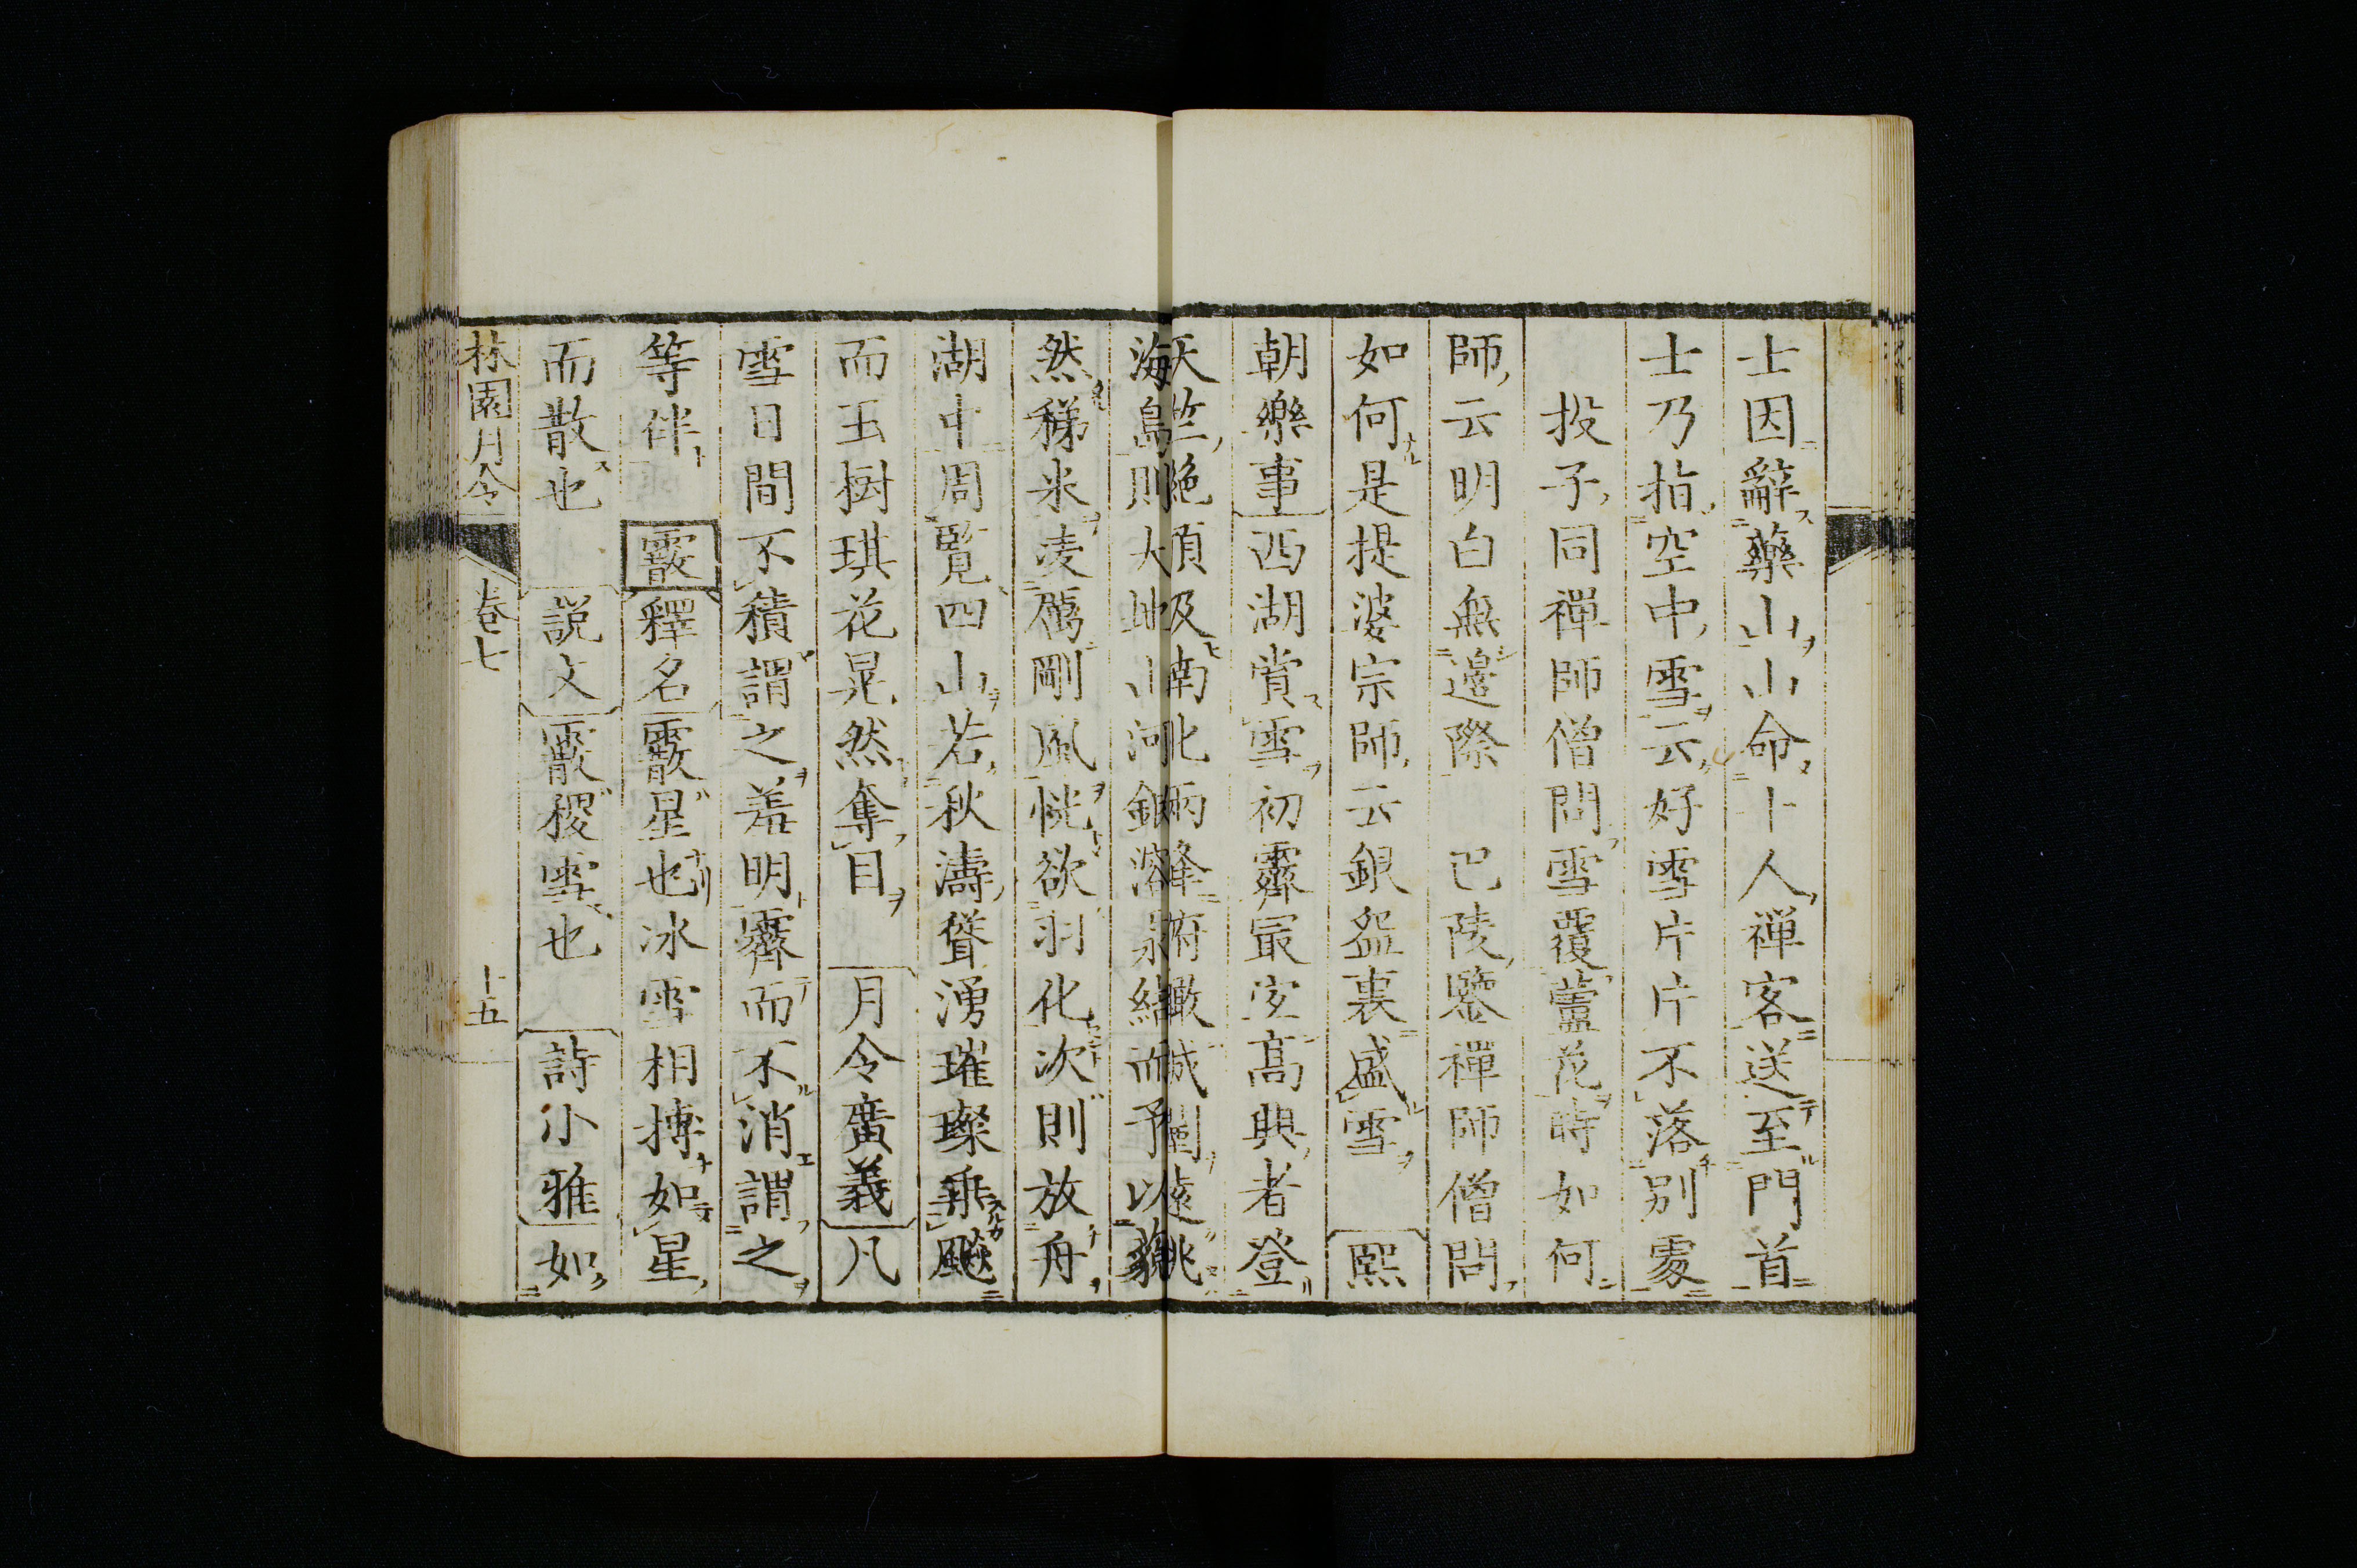 士因辭藥山山命十人禅客送至門首
士乃指空中雪云好雪片片不落别䖏
投子同禪師僧問雪覆蘆花時如何
師云明白無邊際 巴陵鑒禪師僧問
如何是提婆宗師云銀盌裏盛雪 熙
朝樂事西湖賞雪初霽最宐高興者登
天竺絶頂及南北兩峰俯瞰城闉遠眺
海島則大地山河銀溶汞結而予以藐
然稊米凌厲剛風恍欲羽化次則放舟
湖中周覧四山若秋濤聳湧璀璨乗飈
而玉樹琪花晃然奪目 月令廣義凡
雪日間不積謂之羞明霽而不消謂之
等伴 霰 釋名霰星也冰雪相摶如星
而散也 説文霰稷雪也 詩小雅如
林園月令 卷七 十五